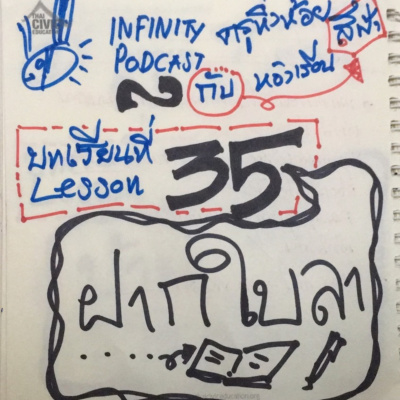 THAI CIVIC EDUCATION
INFINITY ครูหิ่งห้อย สีฟ้า
PODCAST กับ ห้องเรียน
2
บทเรียนที่ 35
Lesson
ฝากใบลา